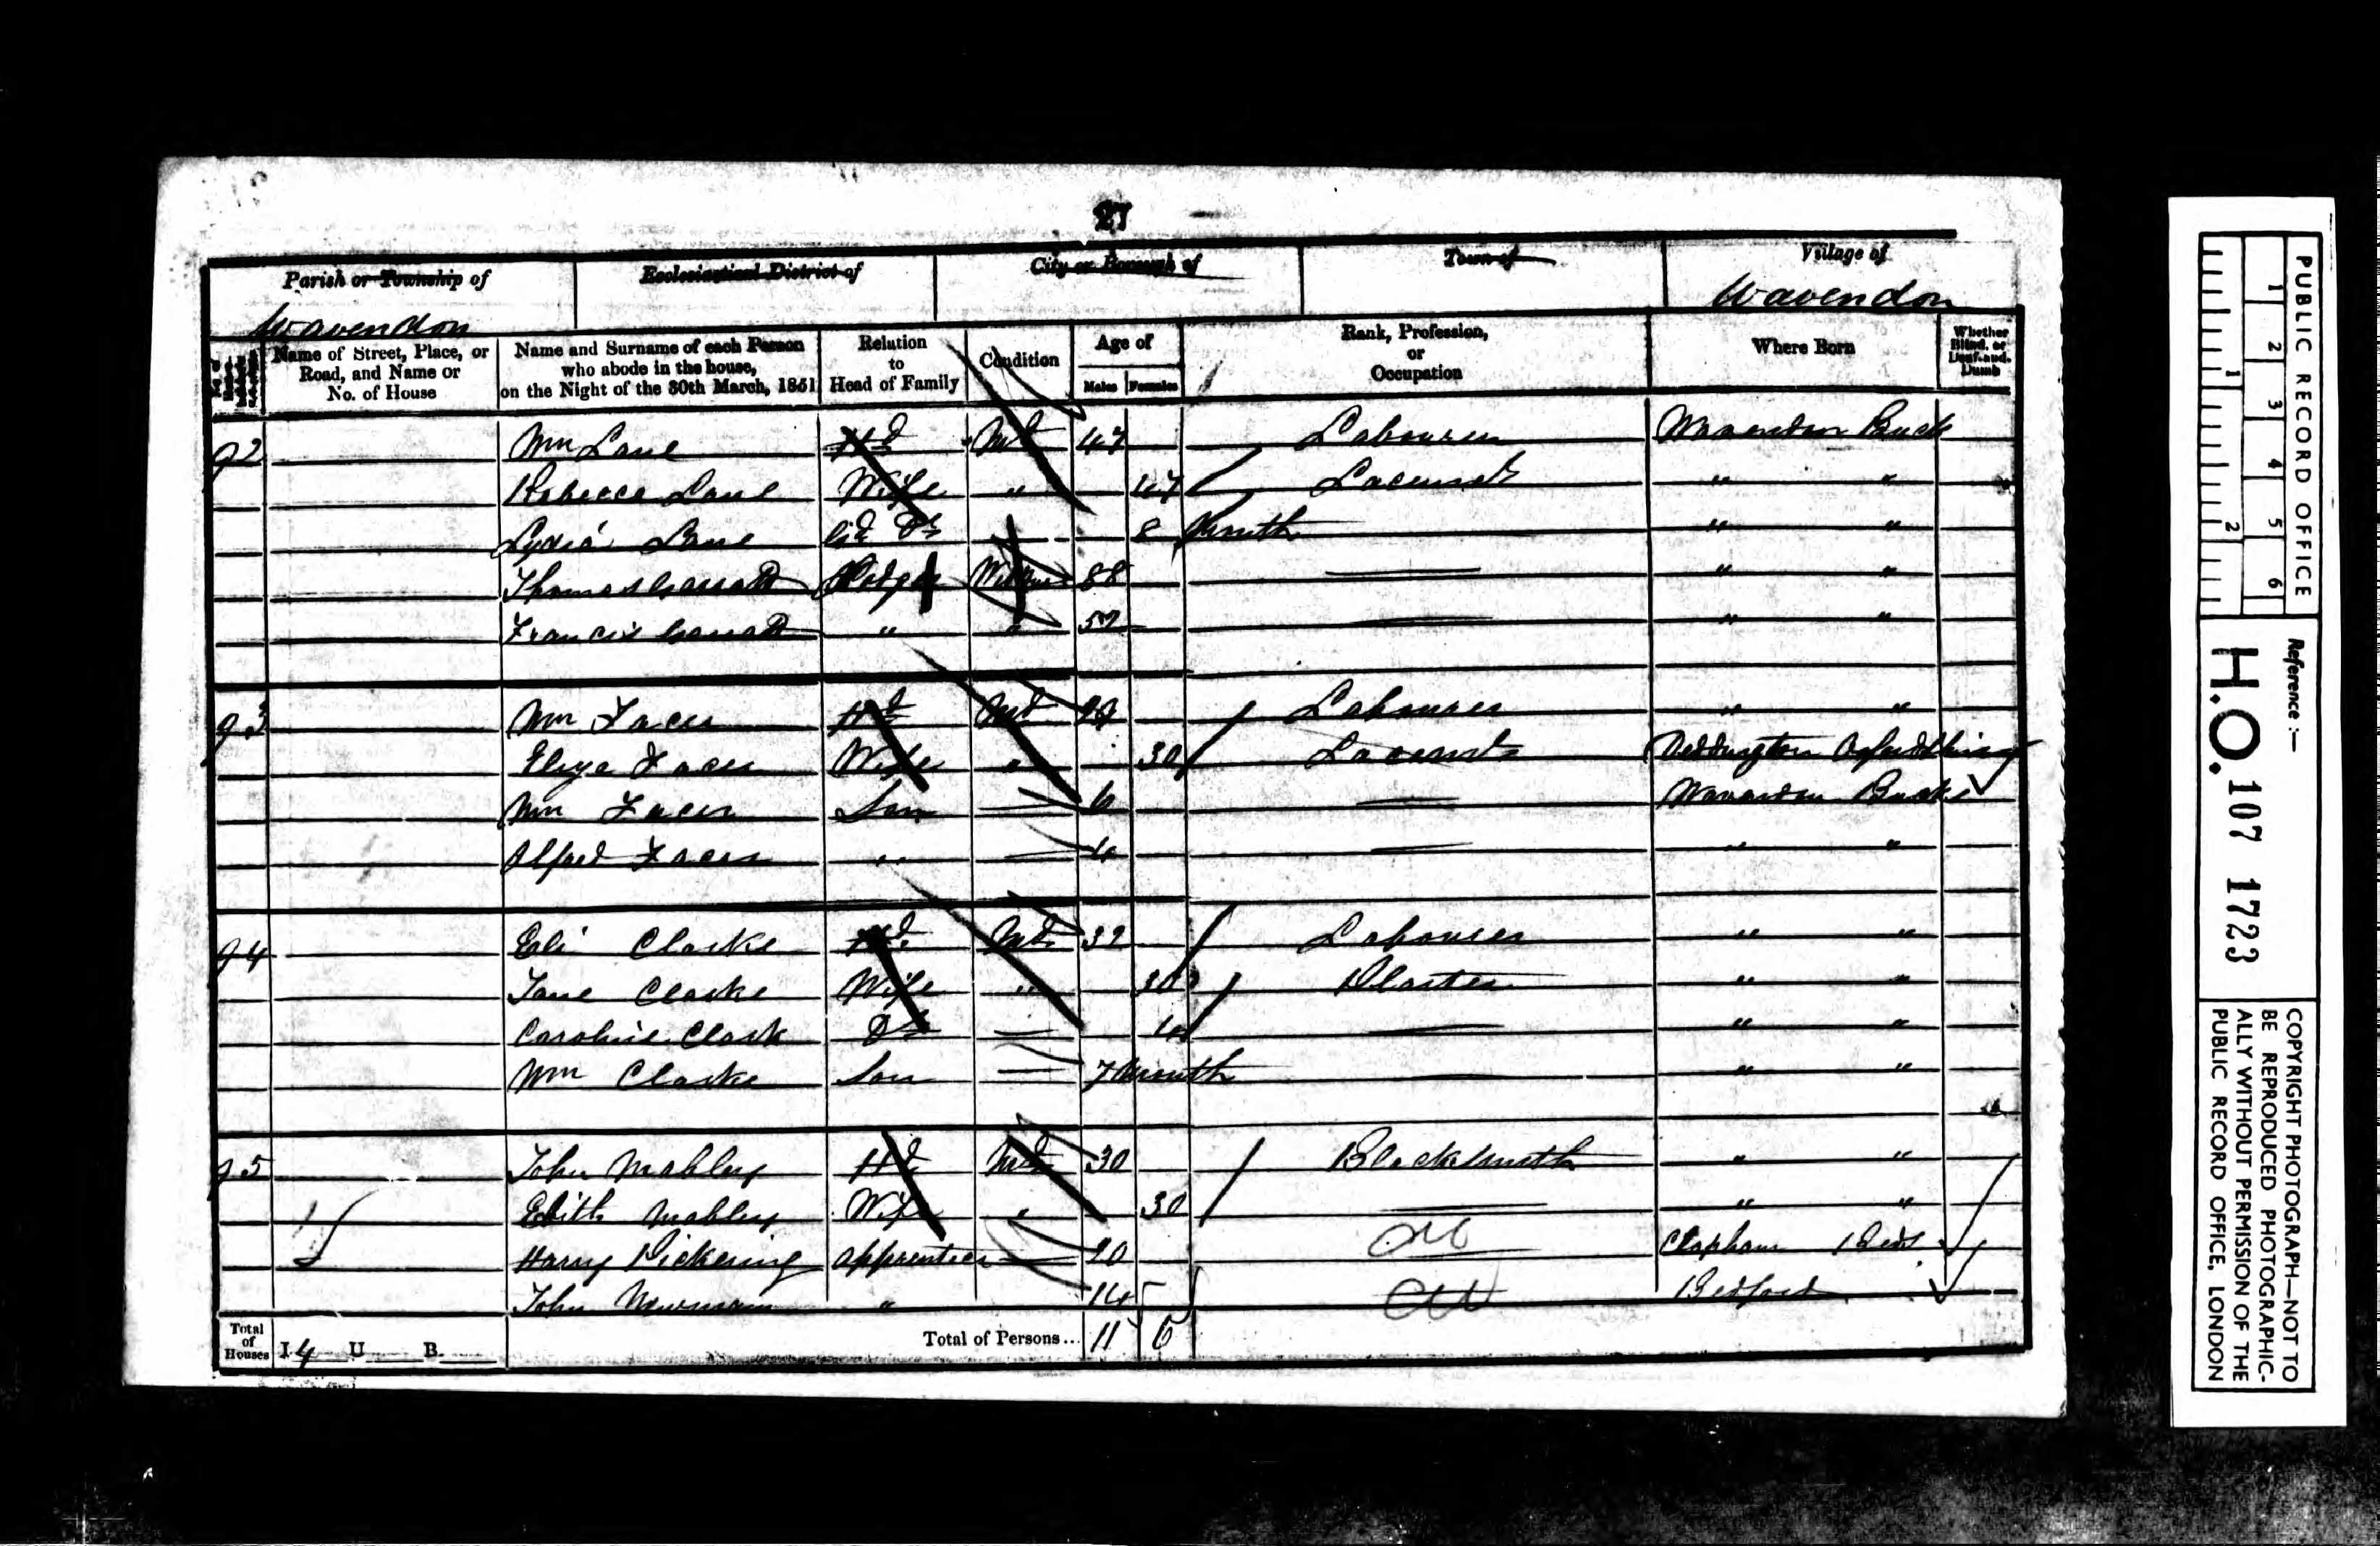 27
Parish or Township of
Ecclesiastical District of
City or Borough of
Town of
Village of
Wavendon
Wavendon
Name of Street, Place, or Road, and Name or No. of House
Name and Surname of each Person who abode in the house, on the Night of the 30th March, 1851
Relation to Head of Family
Condition
Age of
Males Females
Rank, Profession, or Occupation
Where Born
Whether Blind, or Deaf-and-Dumb
92 Wm Lane Hd Md 47 Labourer Wavendon Buck
Rebecca Lane Wife " 47 " "
Lydia Lane 8 Month " "
Thomas Garratt Lodger 88 " "
Francis Garratt " " " "
93 Wm Facer Hd Md Labourer " "
Eliza Facer Wife " 30 Deddington Oxfordshire
Wm Facer Son 6 Wavendon Bucks
Alfred Facer " 4 " "
94 Eli Clarke Hd Md 32 Labourer " "
Jane Clarke Wife " 30 Plaiter " "
Caroline Clark Dr " "
Wm Clarke Son 7 Month " "
95 John Mabley Hd Md 30 Blacksmith " "
Edith Mabley Wife " 30 " "
Harry Pickering apprentice 20 Clapham Beds
John Newman " 14 Bedford
Total of Houses I 4 U B
Total of Persons... 11 6
PUBLIC RECORD OFFICE
1 2 3 4 5 6
1 2
Reference :-
H.O. 107 1723
COPYRIGHT PHOTOGRAPH—NOT TO
BE REPRODUCED PHOTOGRAPHIC-
ALLY WITHOUT PERMISSION OF THE
PUBLIC RECORD OFFICE, LONDON